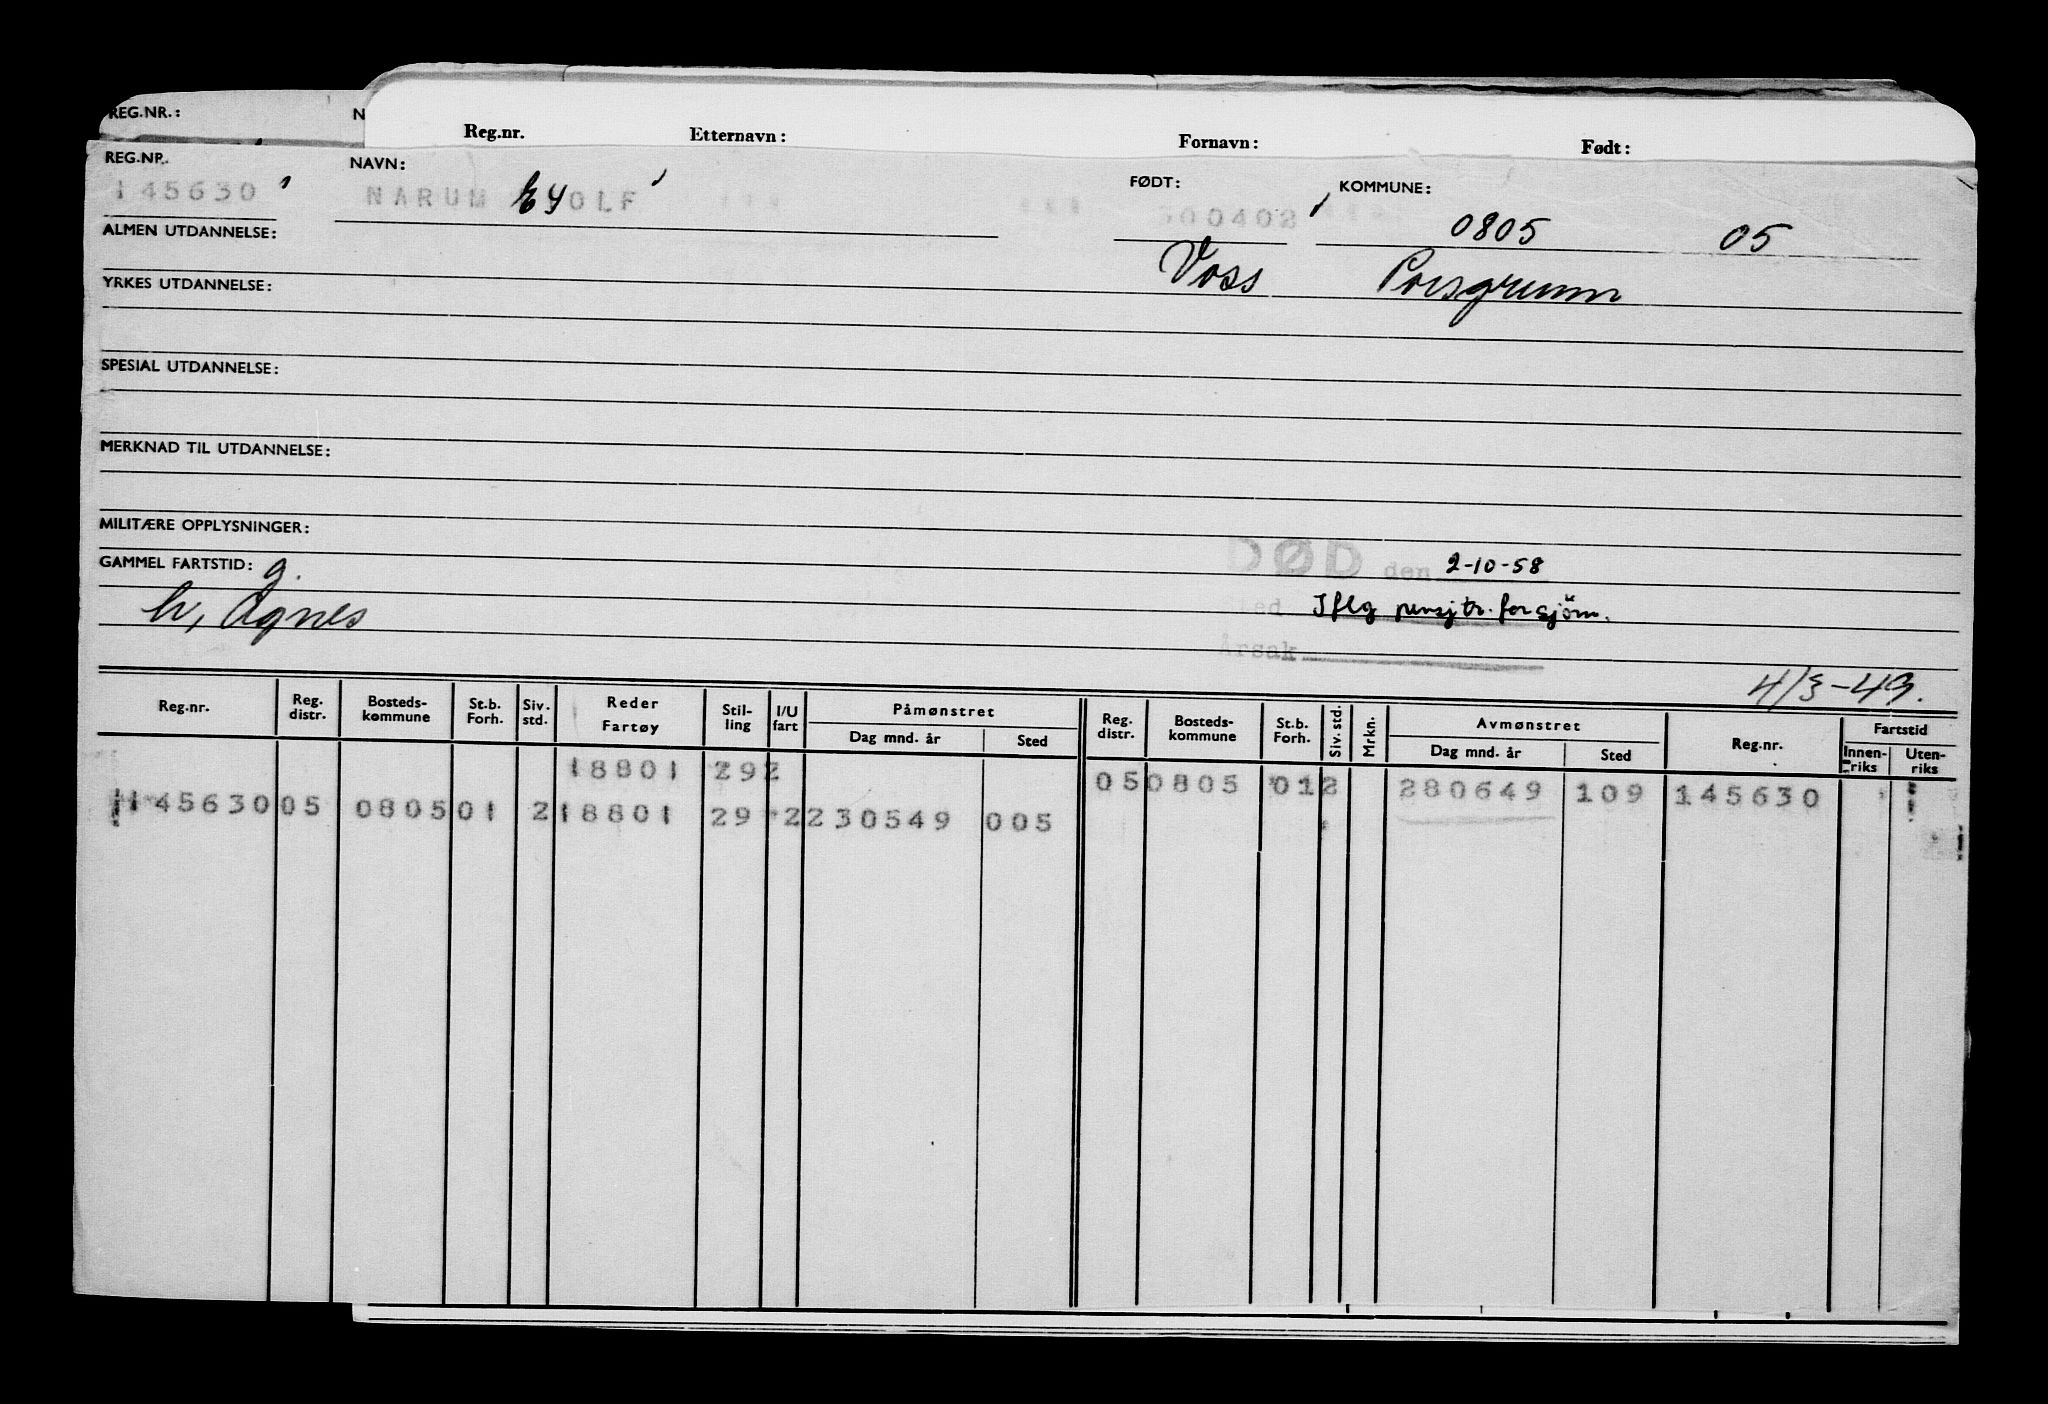 REG.NR.: N
Reg.nr. Etternavn: Fornavn: Født:
REG.NR. NAVN: FØDT: KOMMUNE:
145630 NARUM EYOLF 00402 0805 05
ALMEN UTDANNELSE:
Voss Porsgrunn
YRKES UTDANNELSE:
SPESIAL UTDANNELSE:
MERKNAD TIL UTDANNELSE:
MILITÆRE OPPLYSNINGER:
GAMMEL FARTSTID: g.
DØD den 2-10-58
h, Agnes
Iflg pensjtr. for sjøm.
Årsak
4/3-49.
Reg.nr. Reg. distr. Bosteds-kommune St.b. Forh. Siv. std. Reder Fartøy Stil-ling I/U fart Påmønstret Dag mnd. år Sted Reg. distr. Bosteds-kommune St.b. Forh. Siv. std. Mrkn. Avmønstret Dag mnd. år Sted Reg.nr. Fartstid Innen-riks Uten-riks
18801 292 05 0805 012 280649 109 145630
145630 05 0805 01 2 18801 29 2 230549 005